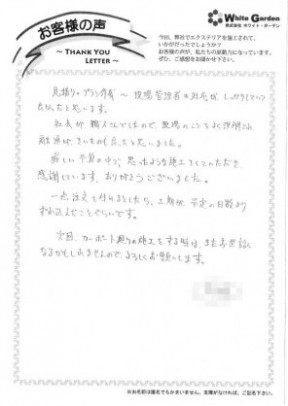 お客様の声
~ THANK YOU
LETTER ~
White Garden
株式会社 ホワイト・ガーデン
今回、弊社でエクステリアを施工されて、
いかがだったでしょうか?
お客様の声が、私たちの原動力になっています。
ぜひ、ご感想をお聞かせ下さい。
見積り・プラン作成 〜 現場管理者の対応が、しっかりしていて
良かったと思います。
社長が職人さんでしたので、現場のことも
融通がきいたのも良かったと思いました。
厳しい予算の中で、思い通りな施工をしていただき、
感謝しています。ありがとうございました。
一点注文を付けるとしたら、工期が、予定の日数より
ずれ込んだことぐらいです。
次回、カーポート周りの施工をする時は、またお世話に
なるかもしれませんので、よろしくお願いします。
※お名前は匿名でもかまいません。支障がなければ、ご記入下さい。